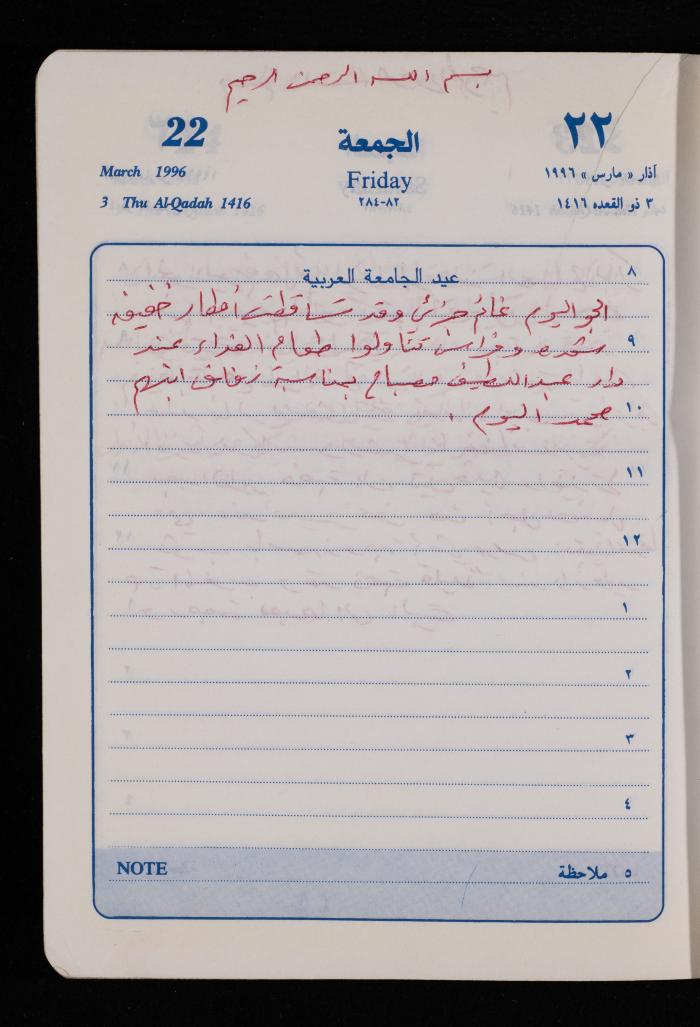 بسم الله الرحمن الرحيم
22 الجمعة ٢٢
March 1996 Friday آذار « مارس » ١٩٩٦
3 Thu Al-Qadah 1416 ٢٨٤-٨٢ ٣ ذو القعده ١٤١٦
٨
عيد الجامعة العربية
الجو اليوم غائم جزئي وقد تساقطت أمطار خفيفة
٩
وفراس تناولوا طعام الغداء عند
دار عبداللطيف مصباح بمناسبة زفاف ابنهم
١٠
محمد اليوم .
١١
١٢
١
٢
٣
٤
NOTE ٥ ملاحظة